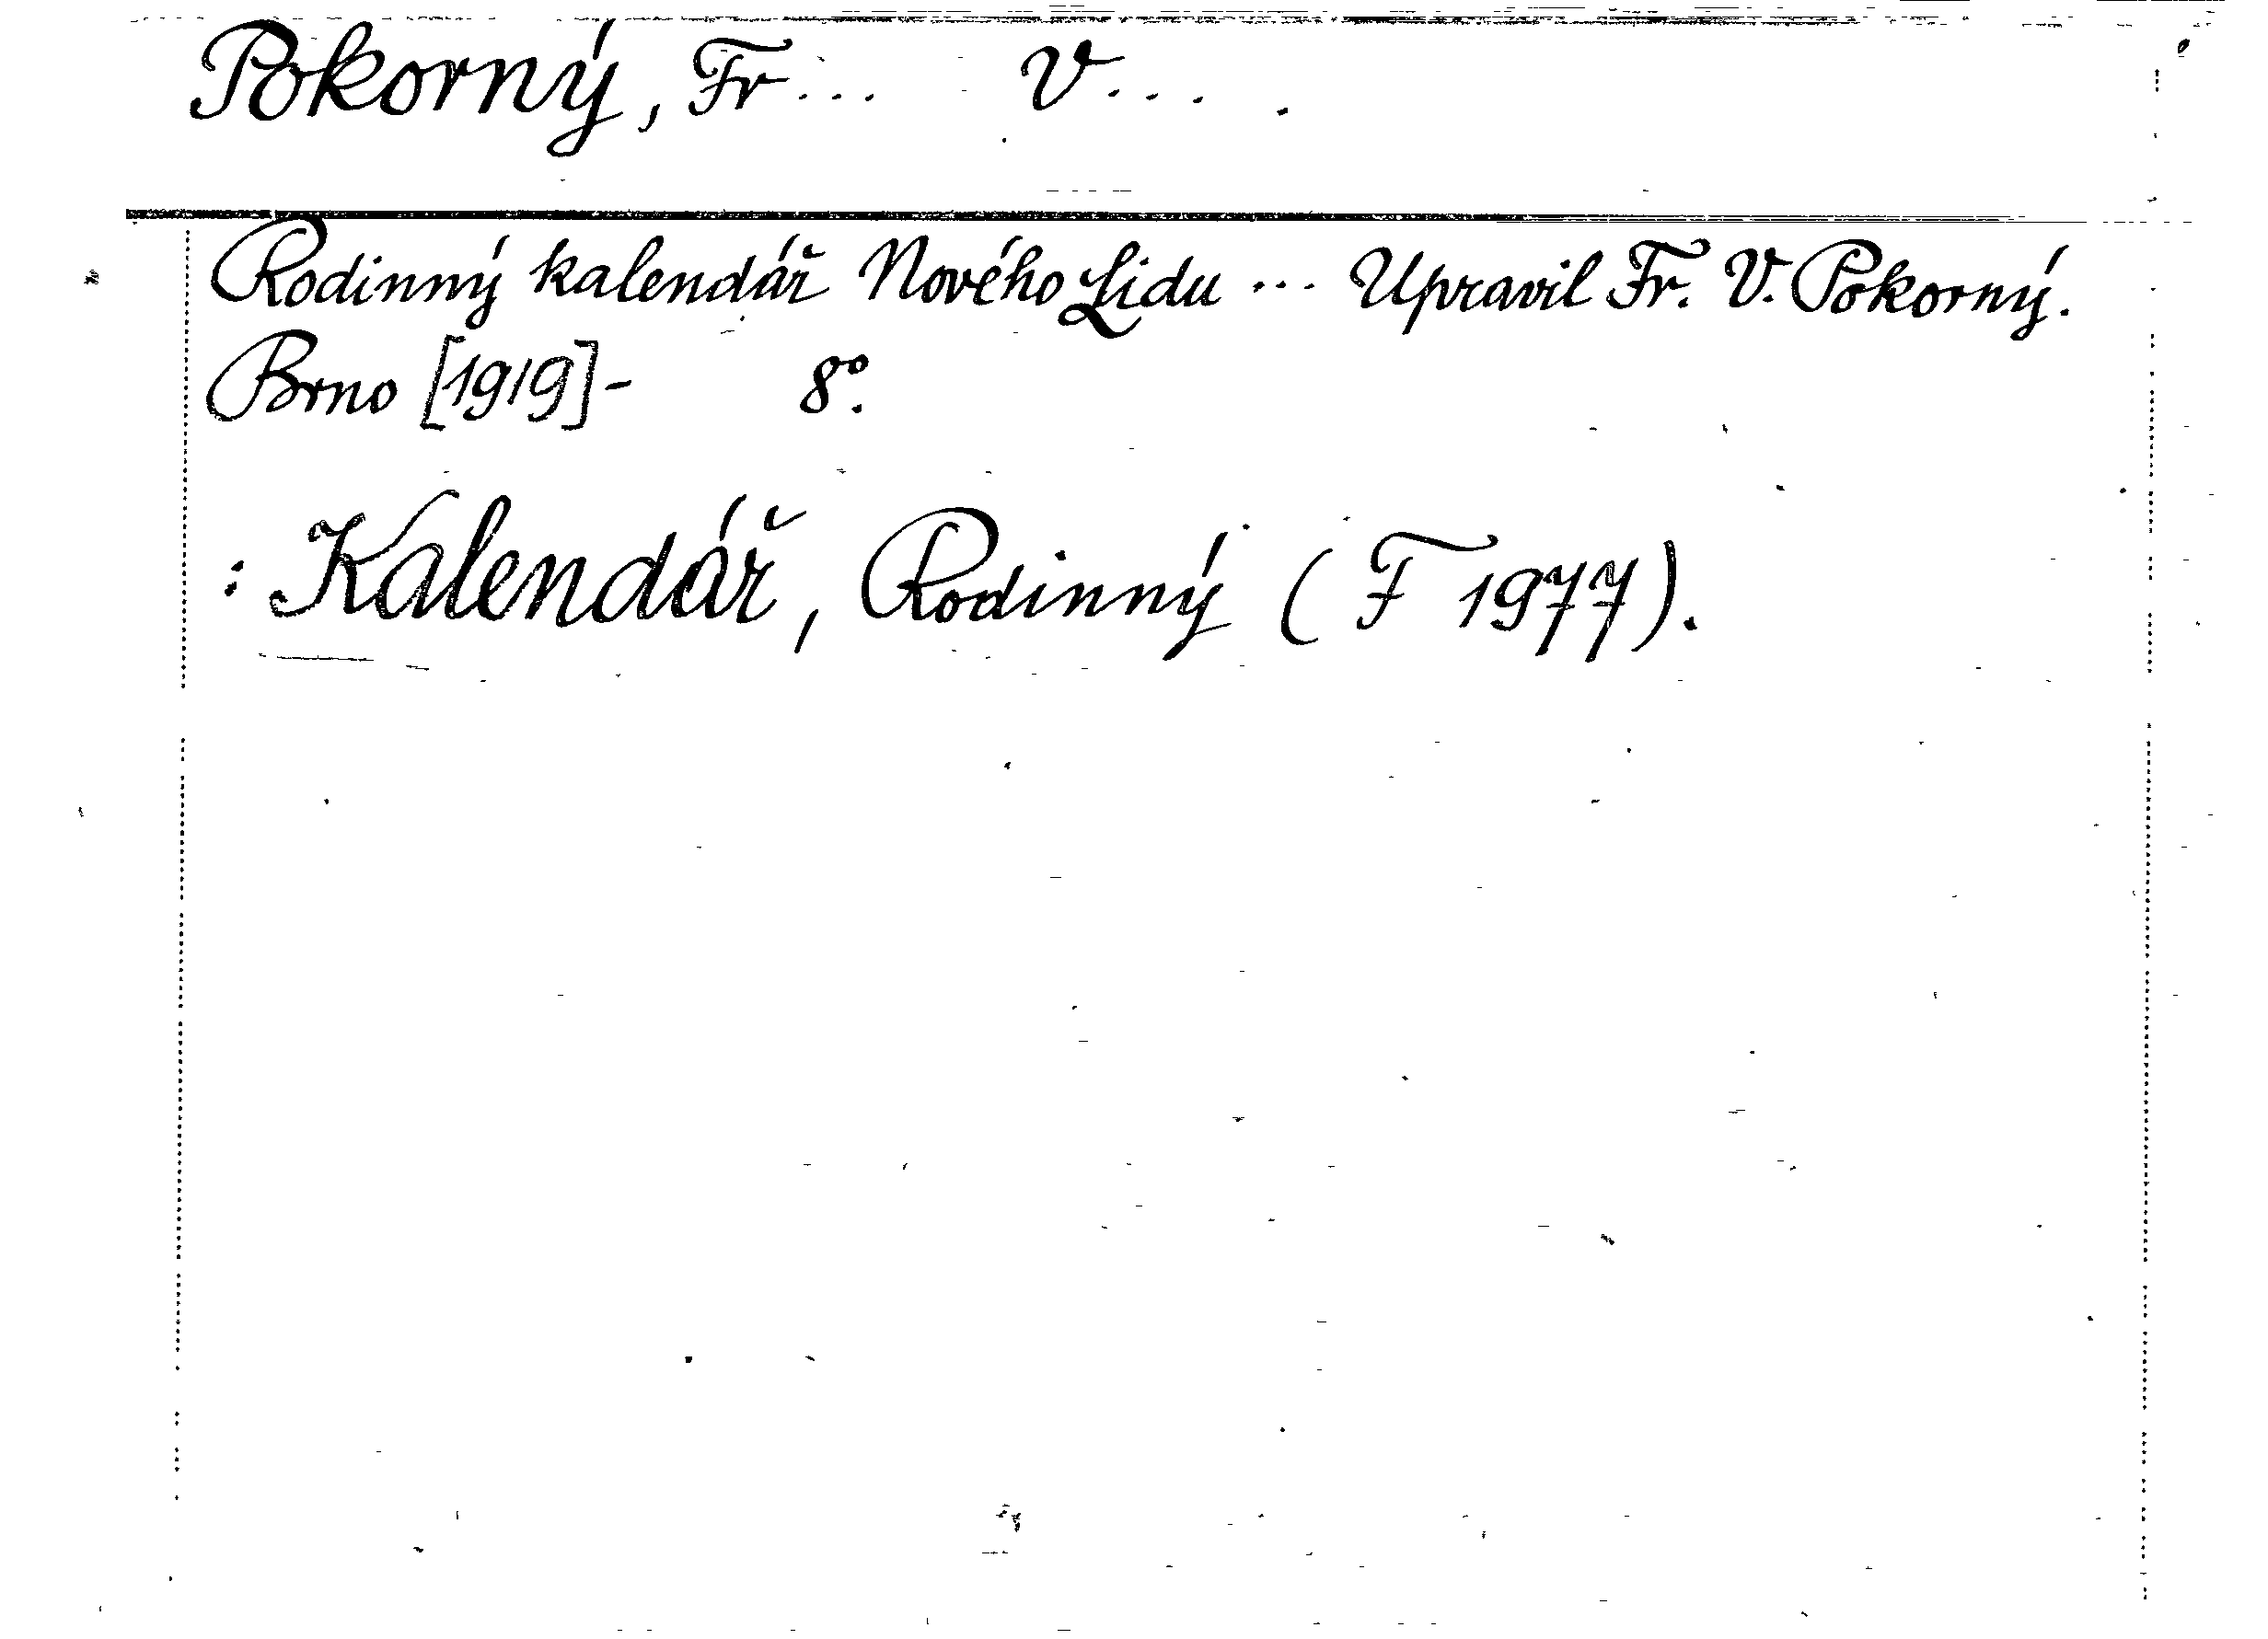 Pokorný, Fr... V... .
Rodinný kalendář Nového Lidu ... Upravil Fr. V. Pokorný.
Brno [1919]- 8°.
: Kalendář, Rodinný (F 1977).